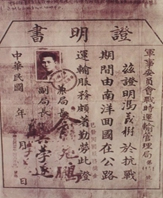 證明書
軍事委員會戰時運輸管理局
茲證明馮義於抗戰
期間由南洋回國在公路
運輸服務頗著勤勞此證
局長
副局長
中華民國年月日